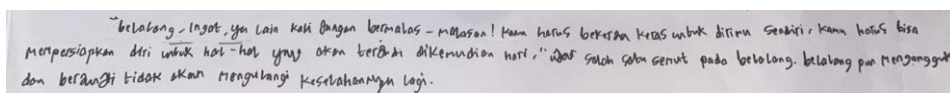 "belalang, Ingat, ya lain kali Jangan bermalas - malasan! Kamu harus bekerja keras untuk dirimu sendiri, kamu harus bisa
mempersiapkan diri untuk hal-hal yang akan terjadi dikemudian hari," ujar salah satu semut pada belalang. belalang pun mengangguk
dan berjanji tidak akan mengulangi kesalahannya lagi.